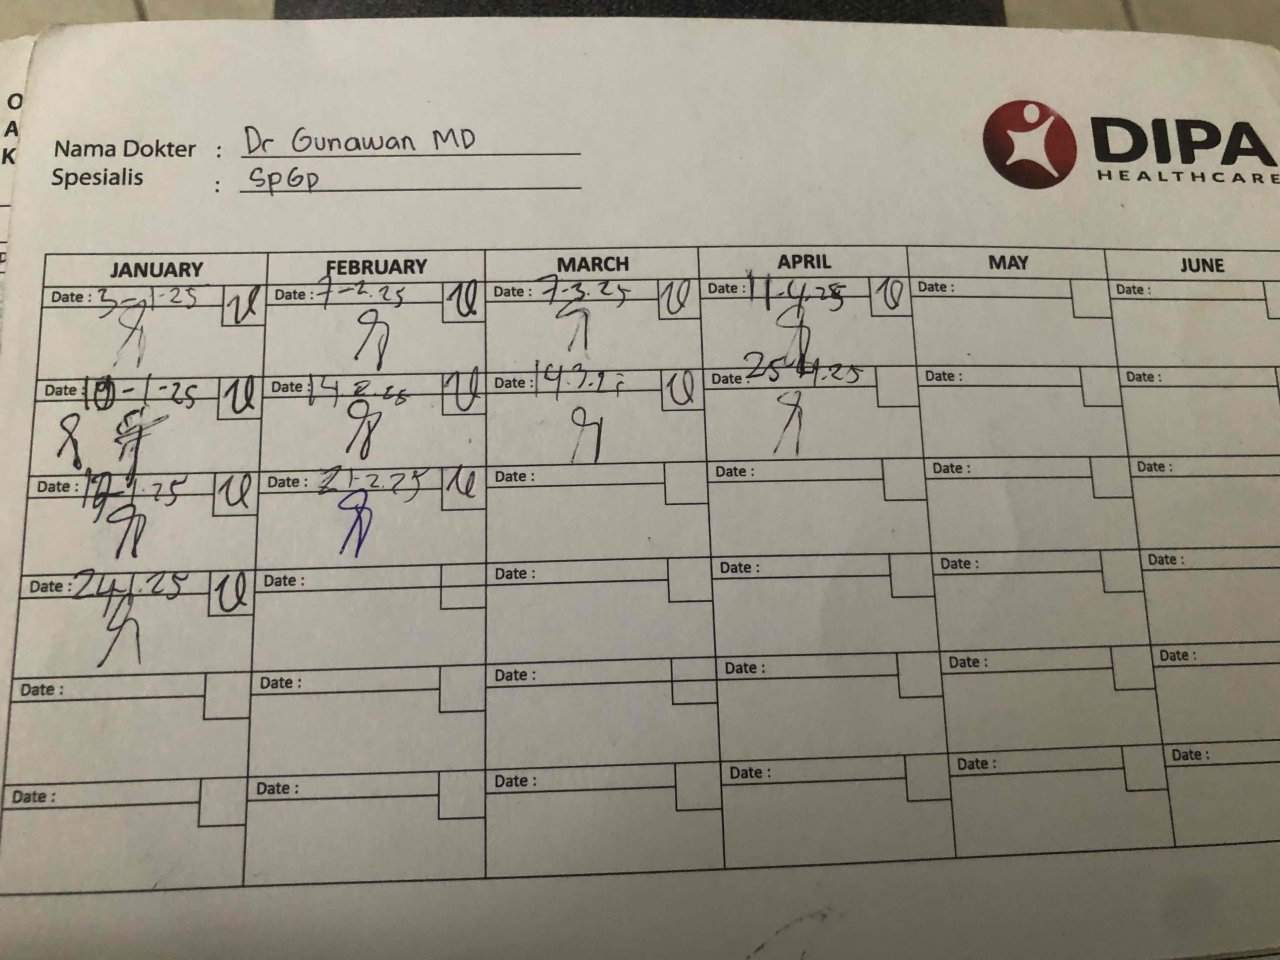 O
A
K
Nama Dokter : Dr Gunawan MD
Spesialis : SpGp
DIPA
HEALTHCARE
JANUARY FEBRUARY MARCH APRIL MAY JUNE
Date : 3-1-25 Date : 7-2.25 Date : 7-3.25 Date : 11-4.25 Date : Date :
Date : 10-1-25 Date : 14.2.25 Date : 14.3.2 Date : 25-4.25 Date : Date :
Date : 17-1.25 Date : 21-2.25 Date : Date : Date : Date :
Date : 24-1.25 Date : Date : Date : Date : Date :
Date : Date : Date : Date : Date : Date :
Date : Date : Date : Date : Date : Date :